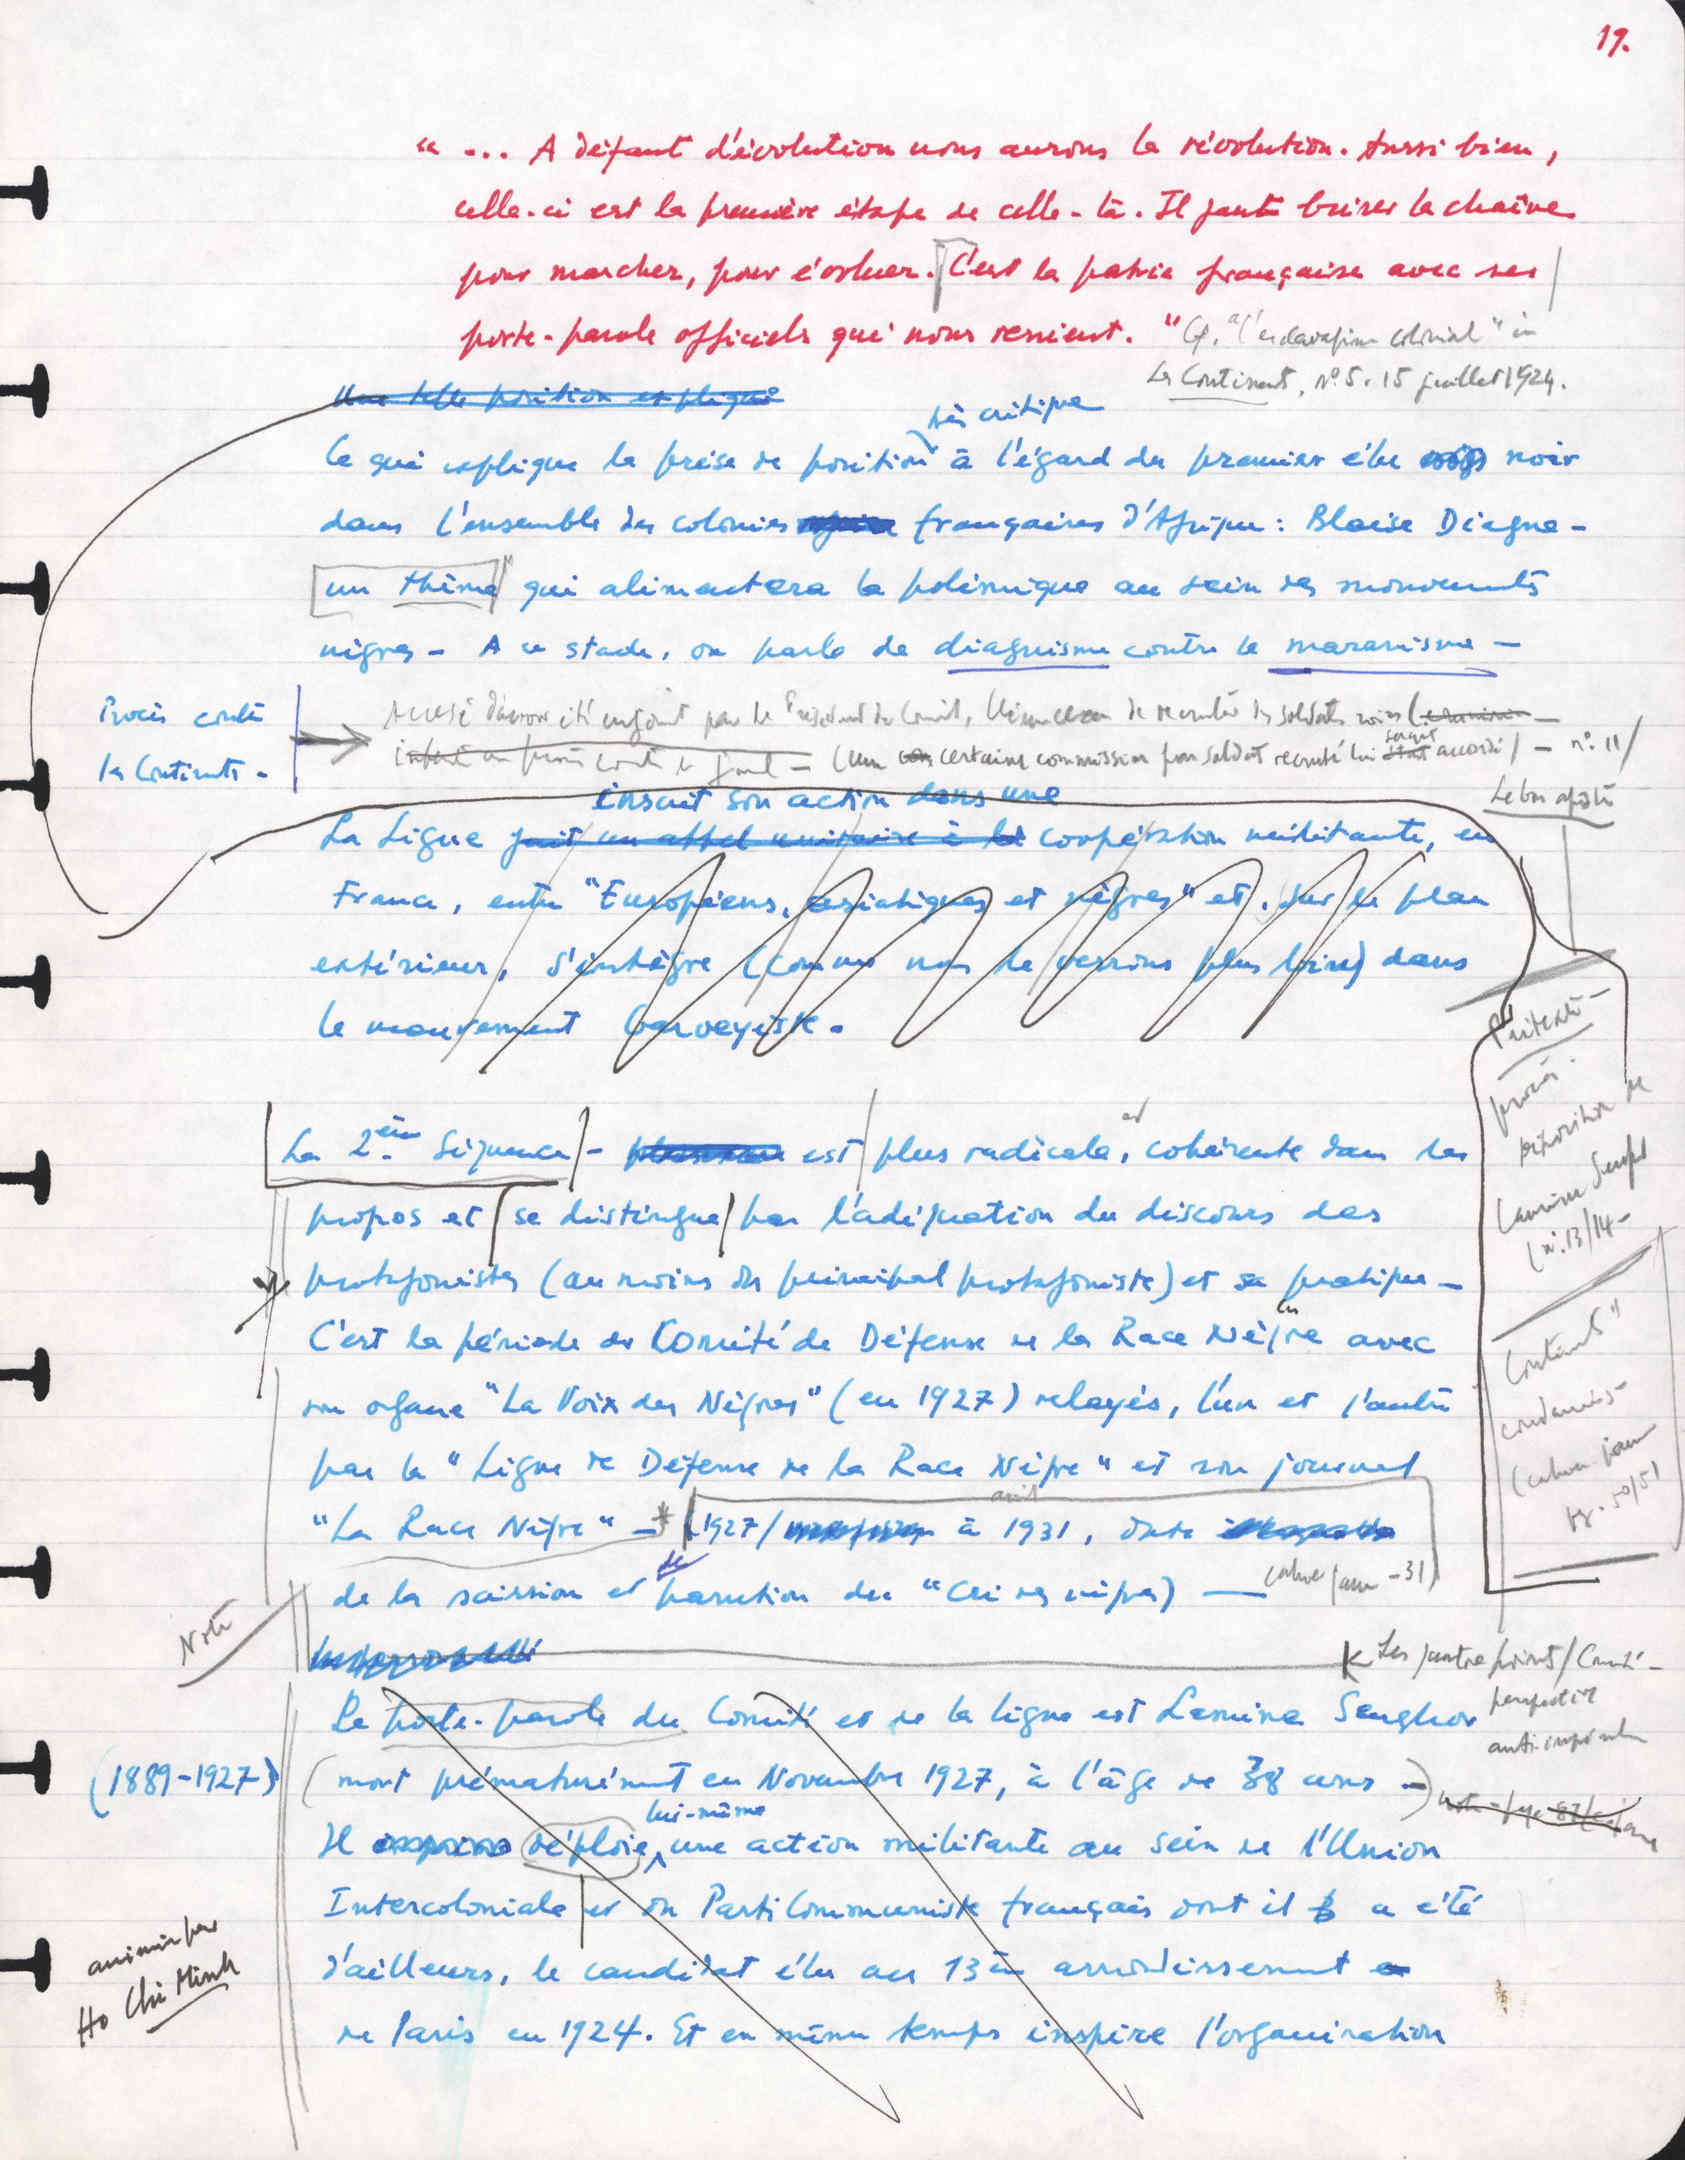 19.
" ... A défaut d'évolution nous aurons la révolution. Aussi bien,
celle-ci est la première étape de celle-là. Il faut briser la chaîne
pour marcher, pour évoluer. C'est la patrie française avec ses
porte-parole officiels qui nous renient. " Cf. "l'esclavagisme colonial" in
Les Continents, n° 5. 15 juillet 1924.
Une telle position explique
très critique
Ce qui explique la prise de position à l'égard du premier élu noir
dans l'ensemble des colonies françaises d'Afrique : Blaise Diagne -
un thème qui alimentera la polémique au sein des mouvements
nègres - A ce stade, on parle de diagnisme contre le maranisme -
Procès contre
les Continents -
Accusé d'avoir été enjoint par le Président du Conseil, Clémenceau de recruter des soldats noirs
(une certaine commission par soldat recruté lui serait accordée) - n° 11/
Le bon apôtre
inscrit son action dans une
La Ligue fait un appel unitaire à la coopération militante, en
France, entre "Européens, asiatiques et nègres" et, sur le plan
extérieur, s'intègre (comme nous le verrons plus loin) dans
le mouvement Garveyiste.
procès -
déposition de
Lamine Senghor
(n° 13/14 -
La 2ème Séquence - est plus radicale, et cohérente dans les
propos et se distingue par l'adéquation du discours des
protagonistes (au moins du principal protagoniste) et sa pratique -
C'est la période du Comité de Défense de la Race Nègre avec
son organe "La Voix des Nègres" (en 1927) relayés, l'un et l'autre
par la "Ligue de Défense de la Race Nègre" et son journal
"La Race Nègre" - * (1927/ à avril 1931, date
de la scission et de parution du "Cri des nègres) —
Continents"
condamnés -
(cahier jaune
pg. 50/51
cahier jaune - 31)
Note
Le porte-parole du Comité et de la Ligue est Lamine Senghor
perspective
(1889-1927)
(mort prématurément en Novembre 1927, à l'âge de 38 ans -)
lui-même
Il déploie une action militante au sein de l'Union
Intercoloniale et du Parti Communiste français dont il a été
d'ailleurs, le candidat élu au 13è arrondissement
de Paris en 1924. Et en même temps inspire l'organisation
animée par
Ho Chi Minh